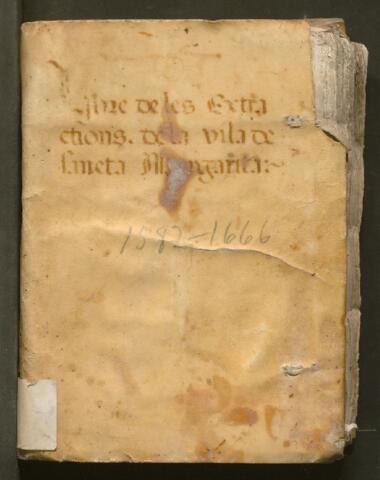 Llibre de les Extra
ctions. de la vila de
sancta Margarita:~
1582-1666